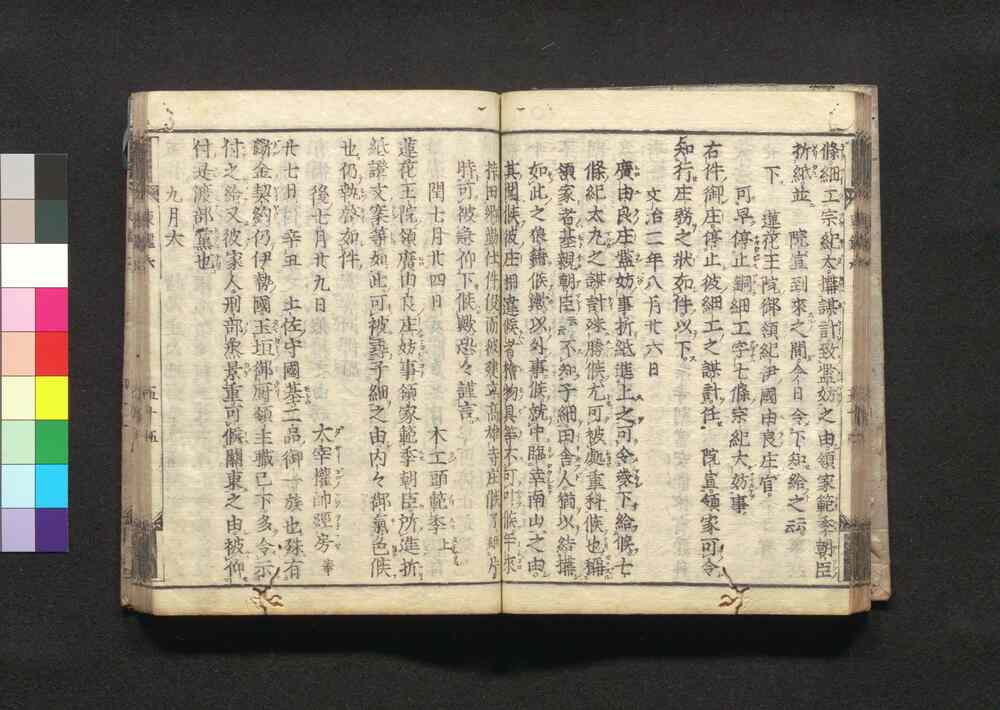 條細工宗紀太謀計致濫妨之由領家範季朝臣
折紙並 院宣到來之間今日令下知給之云云
下 蓮花王院御領紀伊國由良庄官
可早停止銅細工字七條宗紀大妨事
右件御庄停止彼細工之謀計任 院宣領家可令
知行庄務之狀如件以下
文治二年八月廿六日
廣由良庄濫妨事折紙進上之可令參下給候七
條紀太九之謀計殊勝候尤可被處重科候也稱
領家者基親朝臣云云不知子細田舍人猶以結構
如此之狼藉候歟以外事候就中臨幸南山之由
其聞候彼庄相違候者檜物具等不可叶候年來
時可被急仰下候歟恐々謹言
閏七月廿四日 木工頭範季上
蓮花王院領廣由良庄妨事領家範季朝臣所進折
紙證文案等如此可被尋子細之由内々御氣色候
也仍執啓如件
後七月廿九日 太宰權帥經房奉
廿七日辛丑 土佐守國基二品御一族也殊有
斷金契約仍伊勢國玉垣御厨領主職已下多令示
付之給又彼家人刑部丞景重可候關東之由被仰
付是渡部黨也
九月大
五十五